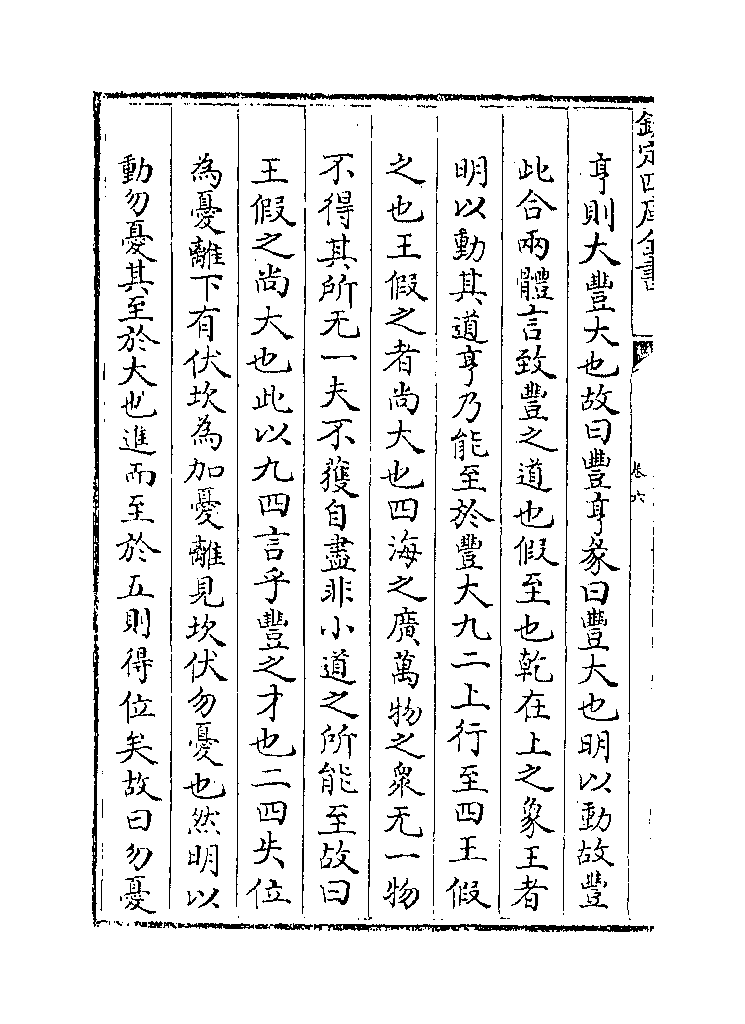 欽定四庫全書
卷六
亨則大豐大也故曰豐亨彖曰豐大也明以動故豐
此合兩體言致豐之道也假至也乾在上之象王者
明以動其道亨乃能至於豐大九二上行至四王假
之也王假之者尚大也四海之廣萬物之衆无一物
不得其所无一夫不獲自盡非小道之所能至故曰
王假之尚大也此以九四言乎豐之才也二四失位
為憂離下有伏坎為加憂離見坎伏勿憂也然明以
動勿憂其至於大也進而至於五則得位矣故曰勿憂